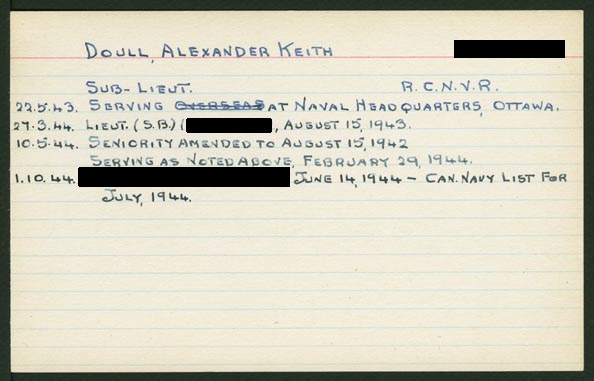 DOULL, ALEXANDER KEITH
SUB-LIEUT. R.C.N.V.R.
22.5.43. SERVING OVERSEAS AT NAVAL HEADQUARTERS, OTTAWA.
27.3.44. LIEUT. (S.B.) ( , AUGUST 15, 1943.
10.5.44. SENIORITY AMENDED TO AUGUST 15, 1942
SERVING AS NOTED ABOVE, FEBRUARY 29, 1944.
1.10.44. JUNE 14, 1944 - CAN. NAVY LIST FOR
JULY, 1944.